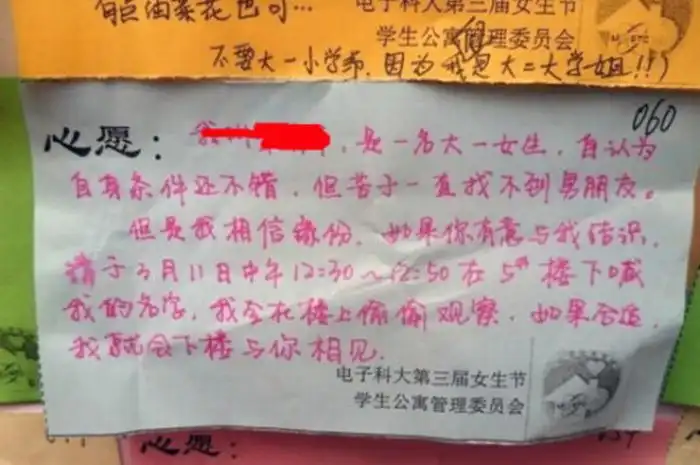 白色油菜花也可...
电子科大第三届女生节
学生公寓管理委员会
不要大一小学弟,因为我是大二大学姐!!)
060
心愿:
是一名大一女生,自认为
自身条件还不错,但苦于一直找不到男朋友。
但是我相信缘份,如果你有意与我结识,
请于3月11日中午12:30~12:50在5#楼下喊
我的名字,我会在楼上偷偷观察,如果合适,
我就会下楼与你相见.
电子科大第三届女生节
学生公寓管理委员会
心愿: